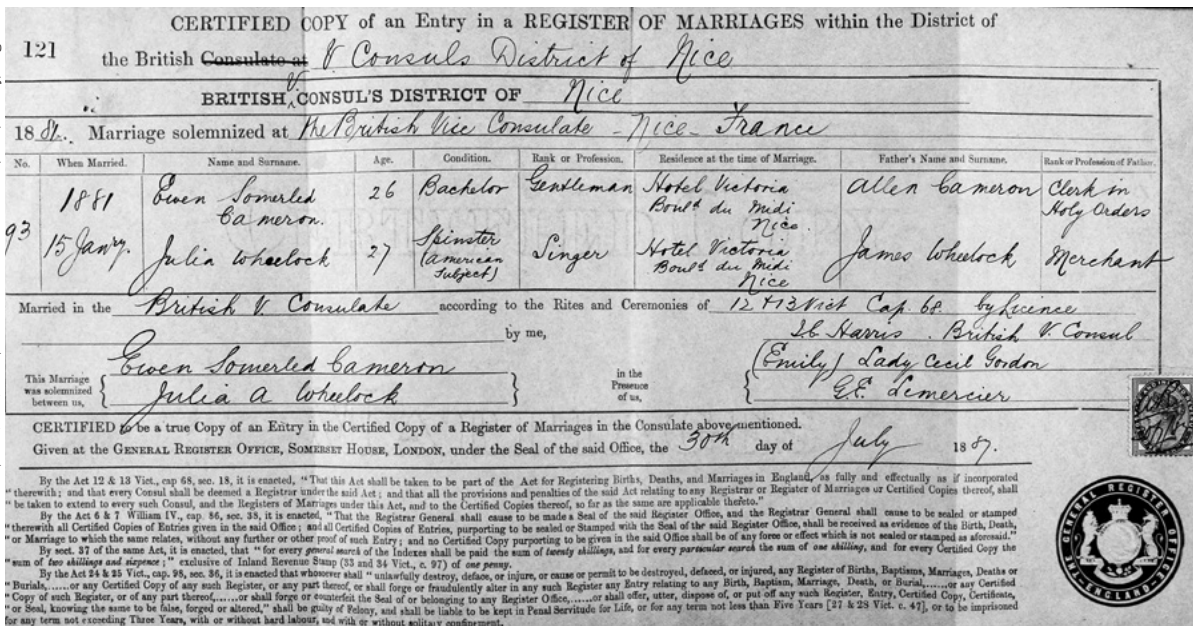 CERTIFIED COPY of an Entry in a REGISTER OF MARRIAGES within the District of
121 the British Consulate at V Consuls District of Nice
BRITISH V CONSUL'S DISTRICT OF Nice
188 . Marriage solemnized at the British Vice Consulate - Nice - France
No. When Married. Name and Surname. Age. Condition. Rank or Profession. Residence at the time of Marriage. Father's Name and Surname. Rank or Profession of Father.
93 1881 15 Janry. Ewen Somerled Cameron. 26 Bachelor Gentleman Hotel Victoria Bould du Midi Nice. Allen Cameron Clerk in Holy Orders
Julia Wheelock 27 Spinster (American Subject) Singer Hotel Victoria Bould du Midi Nice James Wheelock Merchant
Married in the British V. Consulate according to the Rites and Ceremonies of 12 & 13 Vict Cap. 68. by Licence
by me, Harris. British V. Consul
This Marriage was solemnized between us, Ewen Somerled Cameron Julia A Wheelock in the Presence of us, (Emily) Lady Cecil Gordon G.E. Lemercier
CERTIFIED to be a true Copy of an Entry in the Certified Copy of a Register of Marriages in the Consulate above mentioned.
Given at the GENERAL REGISTER OFFICE, SOMERSET HOUSE, LONDON, under the Seal of the said Office, the 30th day of July 1887.
By the Act 12 & 13 Vict., cap 68, sec. 18, it is enacted, "That this Act shall be taken to be part of the Act for Registering Births, Deaths, and Marriages in England, as fully and effectually as if incorporated
"therewith; and that every Consul shall be deemed a Registrar under the said Act; and that all the provisions and penalties of the said Act relating to any Registrar or Register of Marriages or Certified Copies thereof, shall
be taken to extend to every such Consul, and the Registers of Marriages under this Act, and to the Certified Copies thereof, so far as the same are applicable thereto."
By the Act 6 & 7 William IV., cap. 86, sec. 38, it is enacted, "That the Registrar General shall cause to be made a Seal of the said Register Office, and the Registrar General shall cause to be sealed or stamped
"therewith all Certified Copies of Entries given in the said Office; and all Certified Copies of Entries, purporting to be sealed or Stamped with the Seal of the said Register Office, shall be received as evidence of the Birth, Death,
"or Marriage to which the same relates, without any further or other proof of such Entry; and no Certified Copy purporting to be given in the said Office shall be of any force or effect which is not sealed or stamped as aforesaid."
By sect. 37 of the same Act, it is enacted, that "for every general search of the Indexes shall be paid the sum of twenty shillings, and for every particular search the sum of one shilling, and for every Certified Copy the
"sum of two shillings and sixpence;" exclusive of Inland Revenue Stamp (33 and 34 Vict., c. 97) of one penny.
By the Act 24 & 25 Vict., cap. 98, sec. 36, it is enacted that whosoever shall "unlawfully destroy, deface, or injure, or cause or permit to be destroyed, defaced, or injured, any Register of Births, Baptisms, Marriages, Deaths or
"Burials,......or any Certified Copy of any such Register, or any part thereof,......or shall forge or fraudulently alter in any such Register any Entry relating to any Birth, Baptism, Marriage, Death, or Burial,......or any Certified
"Copy of such Register, or of any part thereof,......or shall forge or counterfeit the Seal of or belonging to any Register Office,......or shall offer, utter, dispose of, or put off any such Register, Entry, Certified Copy, Certificate,
"or Seal, knowing the same to be false, forged or altered," shall be guilty of Felony, and shall be liable to be kept in Penal Servitude for Life, or for any term not less than Five Years [27 & 28 Vict. c. 47], or to be imprisoned
for any term not exceeding Three Years, with or without hard labour, and with or without solitary confinement.
THE GENERAL REGISTER OFFICE. ENGLAND